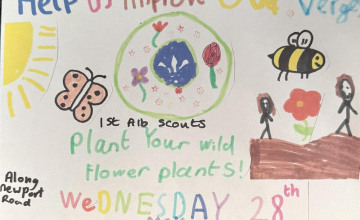 Help us improve Our Verge
1st Alb Scouts
Plant Your wild
flower plants!
Along
Newport
Road
WeDNESDAY 28th